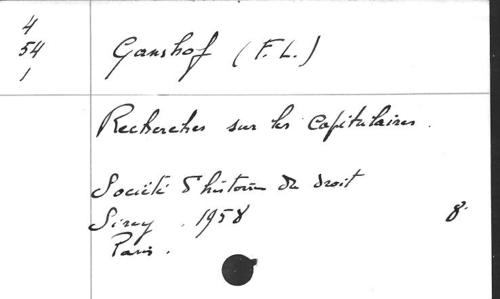 4
54
1
Ganshof (F. L.)
Recherches sur les Capitulaires.
Société d'histoire du droit
Sirey . 1958 8.
Paris.